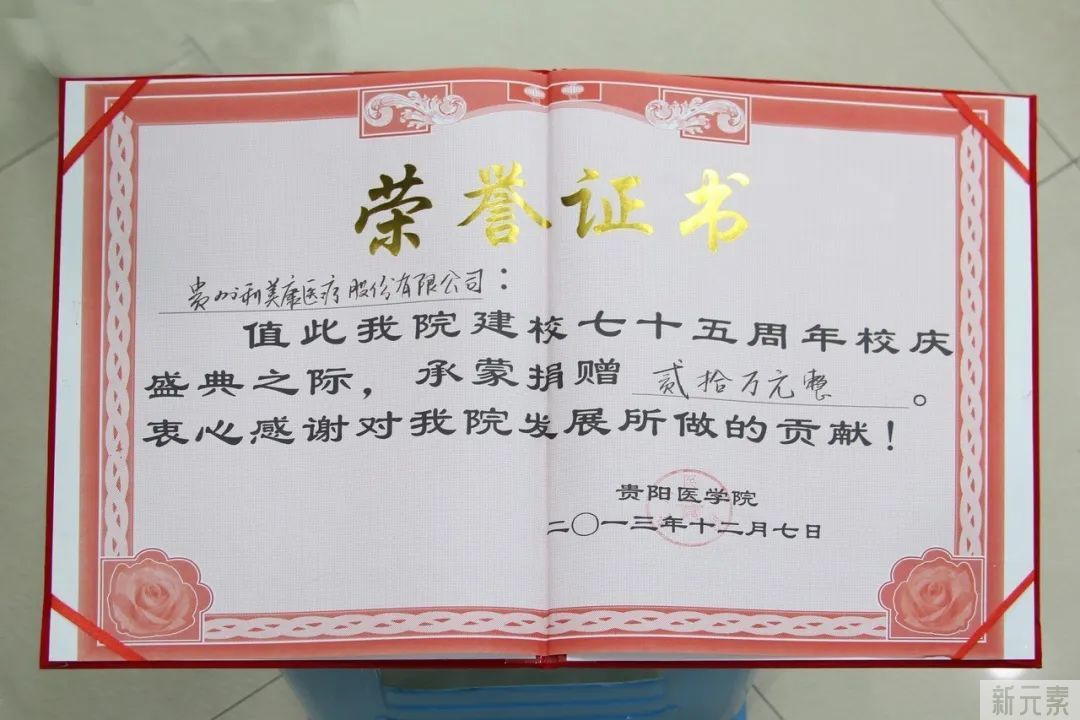 荣誉证书
贵州利美康医疗股份有限公司：
值此我院建校七十五周年校庆
盛典之际，承蒙捐赠贰拾万元整。
衷心感谢对我院发展所做的贡献！
贵阳医学院
二〇一三年十二月七日
新元素